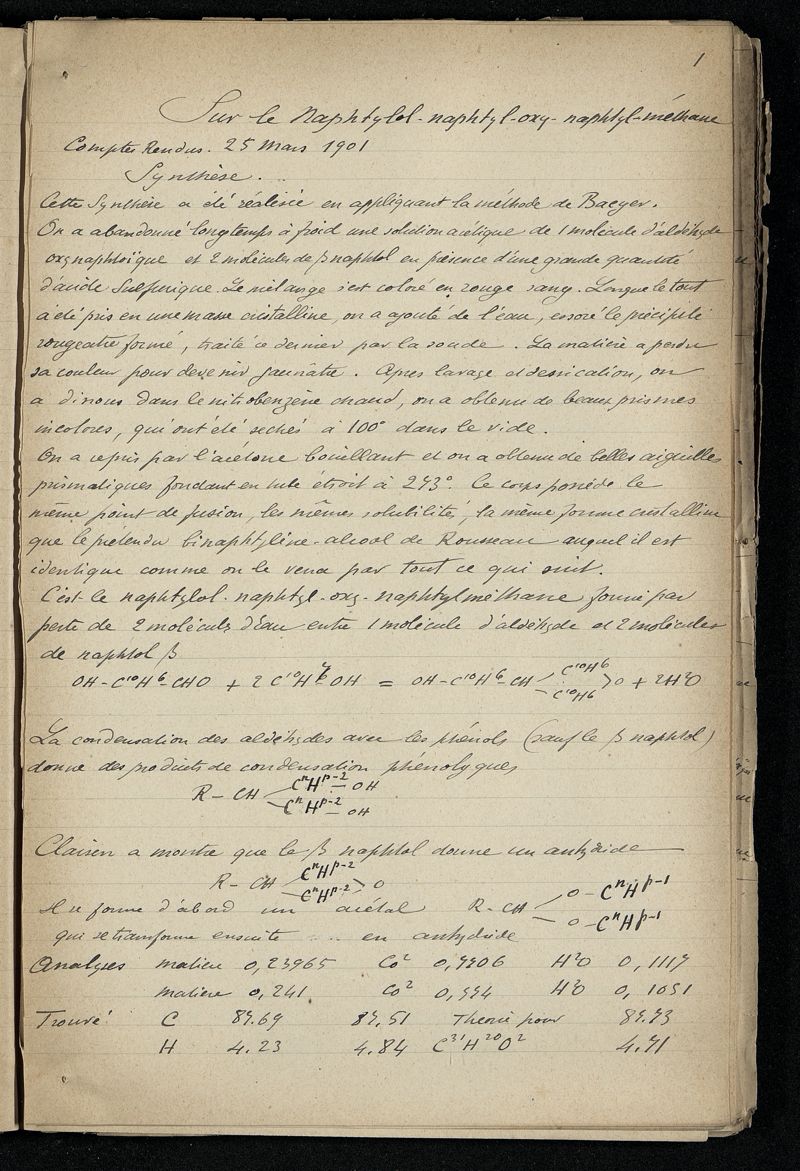 1
Sur le Naphtylol-naphtyl-oxy-naphtyl-méthane
Comptes Rendus. 25 Mars 1901
Synthèse.
Cette Synthèse a été réalisée en appliquant la méthode de Baeyer.
On a abandonné longtemps à froid une solution acétique de 1 molécule d'aldéhyde
oxynaphtoïque et 2 molécules de β naphtol en présence d'une grande quantité
d'acide Sulfurique. Le mélange s'est coloré en rouge sang. Lorsque le tout
a été pris en une masse cristalline, on a ajouté de l'eau, essoré le précipité
rougeatre formé, traité ce dernier par la soude. La matière a perdu
sa couleur pour devenir jaunâtre. Après lavage et dessication, on
a dissous dans le nitrobenzène chaud, on a obtenu de beaux prismes
incolores, qui ont été sechés à 100° dans le vide.
On a repris par l'acétone bouillant et on a obtenu de belles aiguilles
prismatiques fondant en tube étroit à 273°. Ce corps possède le
même point de fusion, les mêmes solubilités, la même forme cristalline
que le pretendu binaphtylène-alcool de Rousseau auquel il est
identique comme on le verra par tout ce qui suit.
C'est le naphtylol-naphtyl-oxy-naphtylméthane formé par
perte de 2 molécules d'Eau entre 1 molécule d'aldéhyde et 2 molécules
de naphtol β
OH-C¹⁰H⁶-CHO + 2 C¹⁰H⁷-OH = OH-C¹⁰H⁶-CH<C¹⁰H⁶ C¹⁰H⁶>O + 2H²O
La condensation des aldéhydes avec les phénols (sauf le β naphtol)
donne des produits de condensation phénolyques
R - CH<CⁿHᵖ⁻²-OH CⁿHᵖ⁻²-OH
Claisen a montré que le β naphtol donne un anhydride
R - CH<CⁿHᵖ⁻² CⁿHᵖ⁻²>O
Il se forme d'abord un acétal R - CH<O-CⁿHᵖ⁻¹ O-CⁿHᵖ⁻¹
qui se transforme ensuite .... en anhydride
Analyses matière 0,23965 Co² 0,7706 H²O 0,1117
matière 0,241 Co² 0,774 H²O 0,1051
Trouvé: C 87.69 87.51 Théorie pour 87.73
H 4.23 4.84 C³¹H²⁰O² 4.71